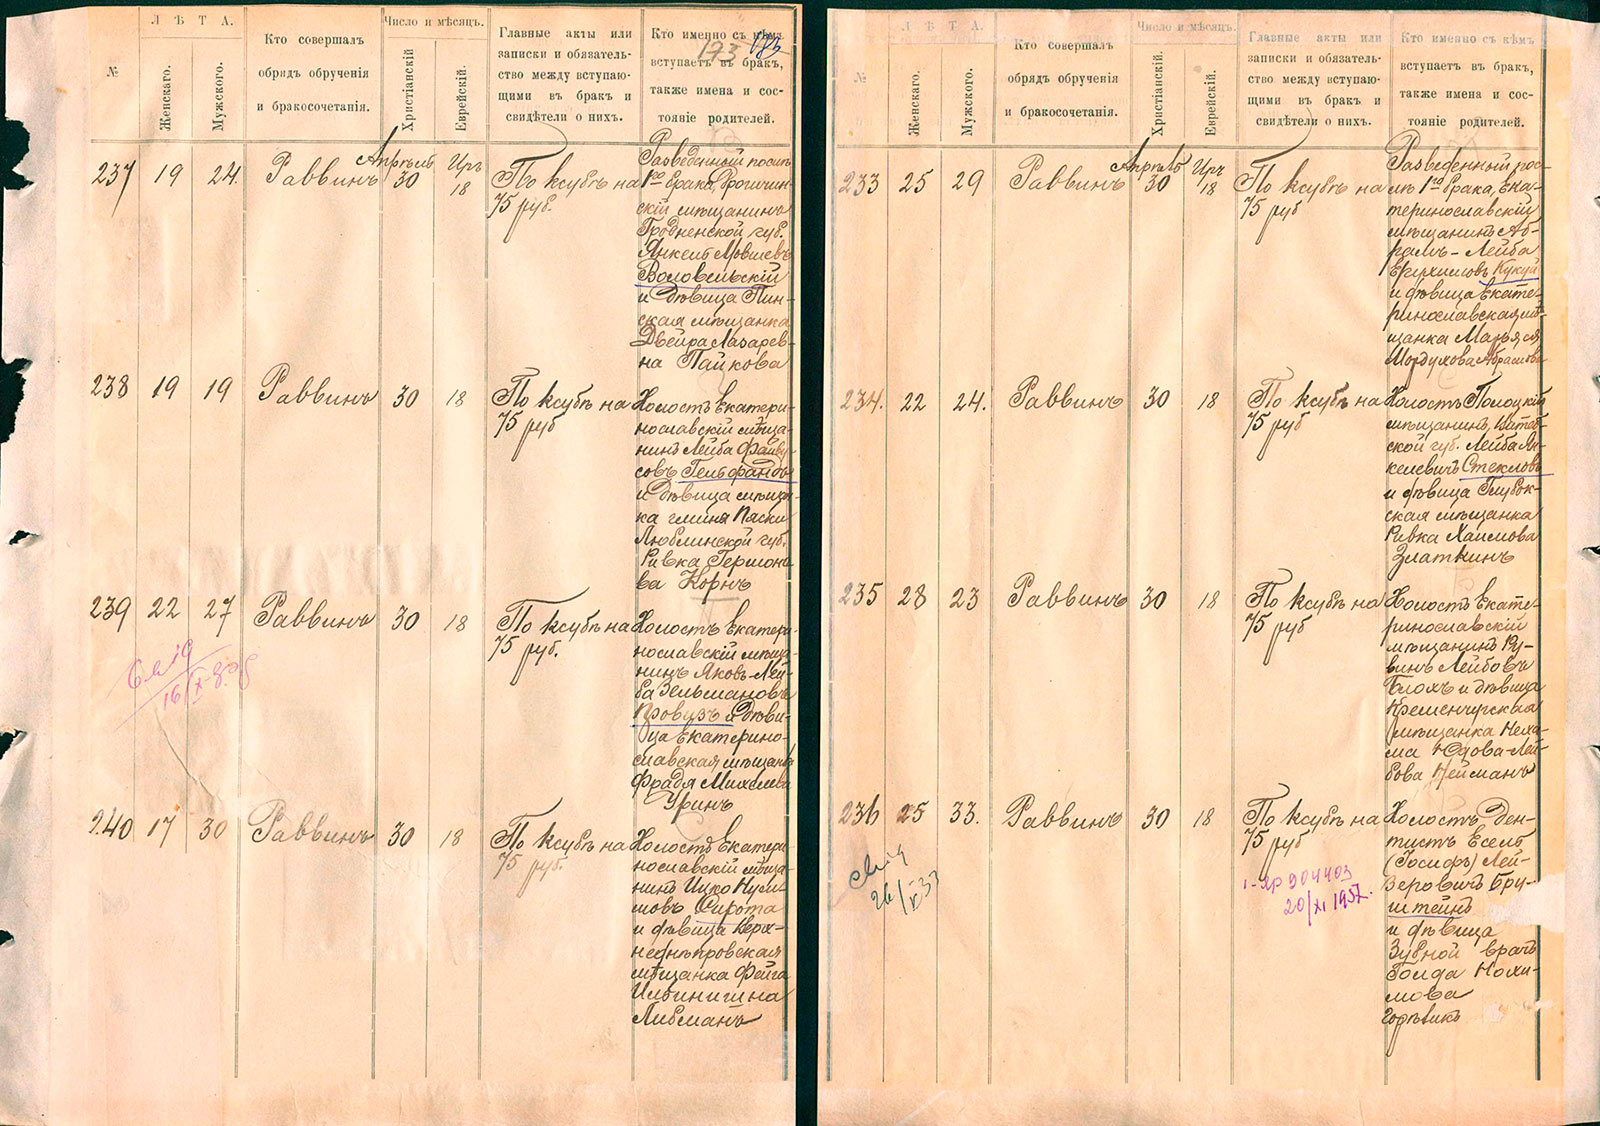 Л Ѣ Т А.
Число и мѣсяцъ.
№
Женскаго.
Мужского.
Кто совершалъ
обрядъ обрученія
и бракосочетанія.
Христіанскій
Еврейскій.
Главные акты или
записки и обязатель-
ство между вступаю-
щими въ бракъ и
свидѣтели о нихъ.
Кто именно съ кѣмъ
вступаетъ въ бракъ,
также имена и сос-
тояніе родителей.
193
237
19
24.
Раввинъ
Апрѣль
30
Иръ
18
По ксубѣ на
75 руб.
Разведенный послѣ
1го брака,
скій мѣщанинъ
Гродненской губ.
Янкель Мовшевъ
Воловельскій
и дѣвица Пин-
ская мѣщанка
Двейра Лазарев-
на Пайкова
238
19
19
Раввинъ
30
18
По ксубѣ на
75 руб
Холостъ Екатери-
нославскій мѣща-
нинъ Лейба Файву-
совъ Гельфандъ
и дѣвица мѣщан-
ка гмина Пяски
Люблинской губ.
Ривка Гершоно-
ва Корнъ
239
22
27
Раввинъ
30
18
По ксубѣ на
75 руб.
Холостъ Екатери-
нославскій мѣща-
нинъ Яковъ-Лей-
ба Зельмановъ
Провизъ и дѣви-
ца Екатерино-
славская мѣщанка
Фрадя Михелева
Уринъ
240
17
30
Раввинъ
30
18
По ксубѣ на
75 руб.
Холостъ Екатери-
нославскій мѣща-
нинъ Ицко Нуси-
мовъ Сирота
и дѣвица Верх-
неднѣпровская
мѣщанка Фейга
Ильинишна
Либманъ
Л Ѣ Т А.
Число и мѣсяцъ.
№
Женскаго.
Мужского.
Кто совершалъ
обрядъ обрученія
и бракосочетанія.
Христіанскій
Еврейскій.
Главные акты или
записки и обязатель-
ство между вступаю-
щими въ бракъ и
свидѣтели о нихъ.
Кто именно съ кѣмъ
вступаетъ въ бракъ,
также имена и сос-
тояніе родителей.
233
25
29
Раввинъ
Апрѣль
30
Иръ
18
По ксубѣ на
75 руб
Разведенный пос-
лѣ 1го брака, Ека-
теринославскій
мѣщанинъ Аб-
рамъ-Лейба
Ерухимовъ Кукуй
и дѣвица Екате-
ринославская мѣ-
щанка Марьяся
Мордухова Абрамова
234.
22
24.
Раввинъ
30
18
По ксубѣ на
75 руб
Холостъ Полоцкій
мѣщанинъ, Витеб-
ской губ. Лейба Ян-
келевичъ Стекловъ
и дѣвица Глубок-
ская мѣщанка
Ривка Хаимова
Златкинъ
235
28
23
Раввинъ
30
18
По ксубѣ на
75 руб
Холостъ Екате-
ринославскій
мѣщанинъ Ру-
винъ Лейбовъ
Блохъ и дѣвица
Кременчугская
мѣщанка Неха-
ма Юдова-Лей-
бова Нейманъ
236
25
33.
Раввинъ
30
18
По ксубѣ на
75 руб
1-ЯР 904403
20/XI 1957.
26/V 33
Холостъ, Ден-
тистъ Есель
(Іосифъ) Лей-
зеровичъ Бру-
штейнъ
и дѣвица
Зубной врачъ
Голда Нохи-
мова